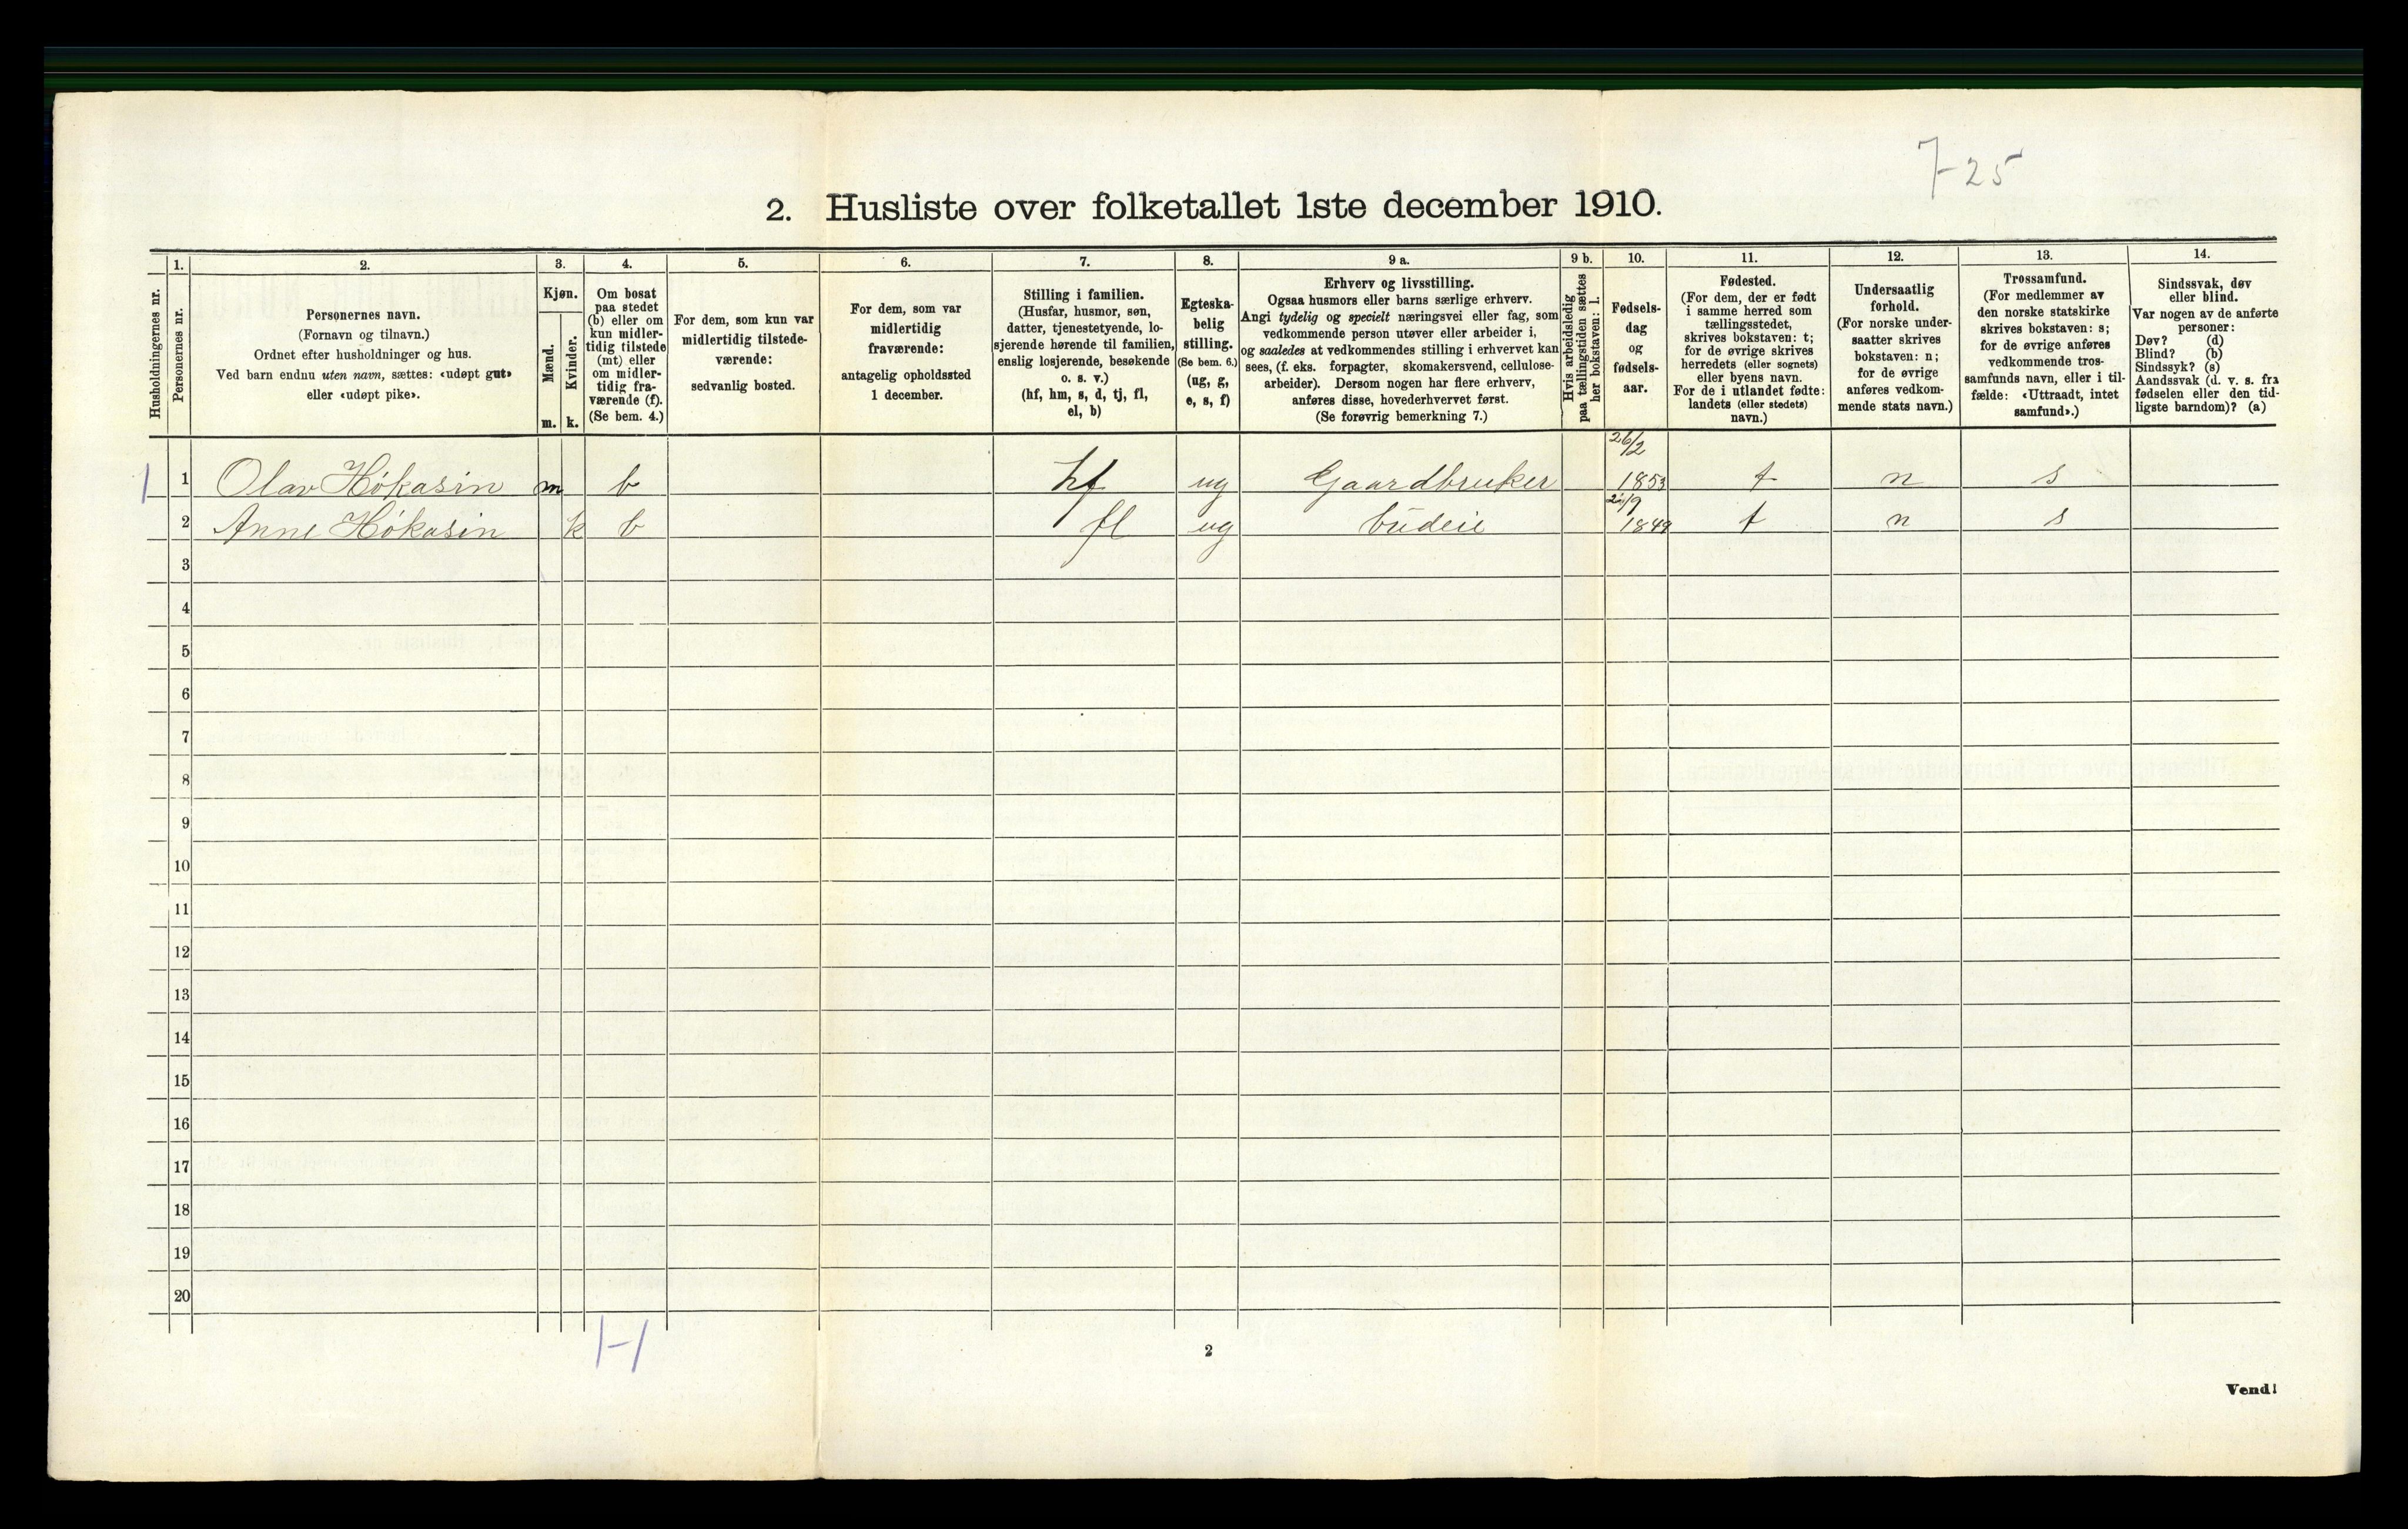 7-25
2. Husliste over folketallet 1ste december 1910.
Husholdningernes nr.
1.
Personernes nr.
2.
Personernes navn.
(Fornavn og tilnavn.)
Ordnet efter husholdninger og hus.
Ved barn endnu uten navn, sættes: «udøpt gut»
eller «udøpt pike».
3.
Kjøn.
Mænd.
Kvinder.
m. k.
4.
Om bosat
paa stedet
(b) eller om
kun midler-
tidig tilstede
(mt) eller
om midler-
tidig fra-
værende (f).
(Se bem. 4.)
5.
For dem, som kun var
midlertidig tilstede-
værende:
sedvanlig bosted.
6.
For dem, som var
midlertidig
fraværende:
antagelig opholdssted
1 december.
7.
Stilling i familien.
(Husfar, husmor, søn,
datter, tjenestetyende, lo-
sjerende hørende til familien,
enslig losjerende, besøkende
o. s. v.)
(hf, hm, s, d, tj, fl,
el, b)
8.
Egteska-
belig
stilling.
(Se bem. 6.)
(ug, g,
e, s, f)
9 a.
Erhverv og livsstilling.
Ogsaa husmors eller barns særlige erhverv.
Angi tydelig og specielt næringsvei eller fag, som
vedkommende person utøver eller arbeider i,
og saaledes at vedkommendes stilling i erhvervet kan
sees, (f. eks. forpagter, skomakersvend, cellulose-
arbeider). Dersom nogen har flere erhverv,
anføres disse, hovederhvervet først.
(Se forøvrig bemerkning 7.)
9 b.
Hvis arbeidsledig
paa tællingstiden sættes
her bokstaven: l.
10.
Fødsels-
dag
og
fødsels-
aar.
11.
Fødested.
(For dem, der er født
i samme herred som
tællingsstedet,
skrives bokstaven: t;
for de øvrige skrives
herredets (eller sognets)
eller byens navn.
For de i utlandet fødte:
landets (eller stedets)
navn.)
12.
Undersaatlig
forhold.
(For norske under-
saatter skrives
bokstaven: n;
for de øvrige
anføres vedkom-
mende stats navn.)
13.
Trossamfund.
(For medlemmer av
den norske statskirke
skrives bokstaven: s;
for de øvrige anføres
vedkommende tros-
samfunds navn, eller i til-
fælde: «Uttraadt, intet
samfund».)
14.
Sindssvak, døv
eller blind.
Var nogen av de anførte
personer:
Døv? (d)
Blind? (b)
Sindssyk? (s)
Aandssvak (d. v. s. fra
fødselen eller den tid-
ligste barndom)? (a)
26/2
1 1 Olav Høkasin m b hf ug Gaardbruker 1853 t n s
2 Anne Høkasin k b fl ug budeie 1849 t n s
3
4
5
6
7
8
9
10
11
12
13
14
15
16
17
18
19
20
1-1
2
Vend!